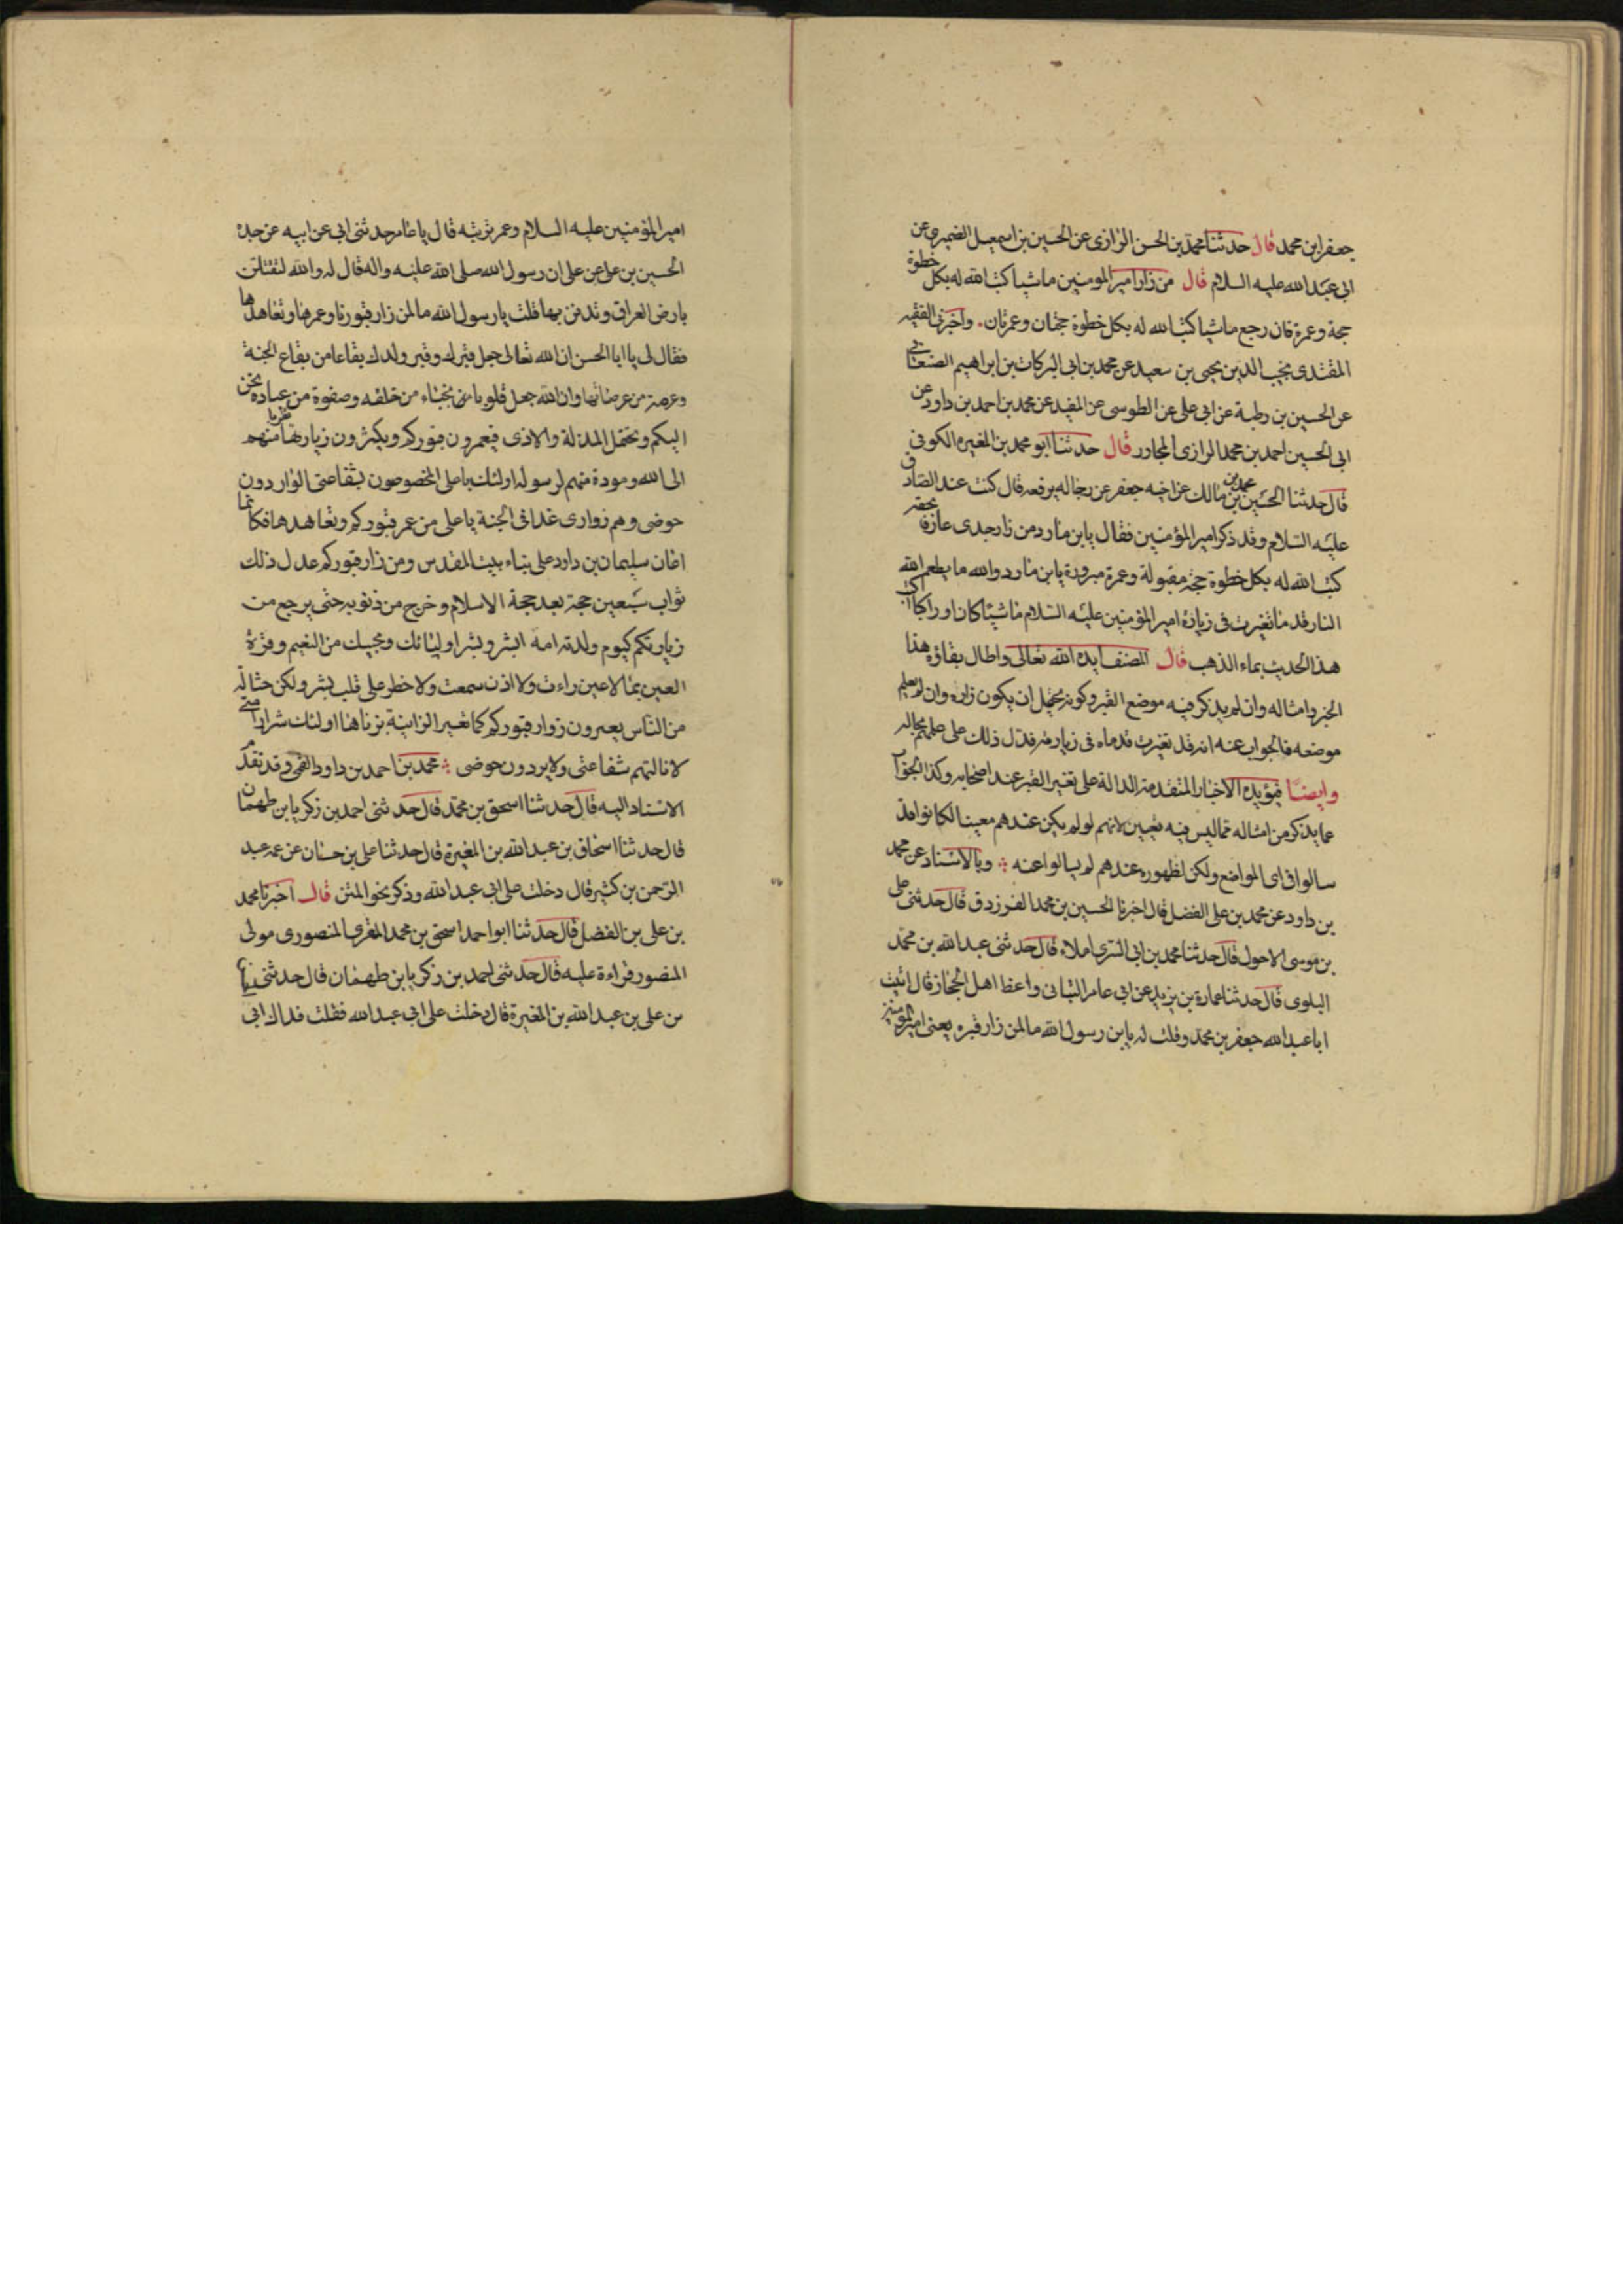 جعفر ابن محمد قال حدثنا محمد بن الحسن الرازى عن الحسين بن اسمعيل الضميرى عن
ابى عبد الله عليه السلام قال من زار امير المومنين ماشيا كتب الله له بكل خطوة
حجة وعمرة فان رجع ماشيا كتب الله له بكل خطوة حجتان وعمرتان. واخبرنى الفقيه
المقتدى نجيب الدين يحيى بن سعيد عن محمد بن ابى البركات بن ابراهيم الصنعانى
عن الحسين بن رطبة عن ابى على عن الطوسى عن المفيد عن محمد بن احمد بن داود عن
ابى الحسين احمد بن محمد الرازى المجاور قال حدثنا ابو محمد بن المغيرة الكوفى
قال حدثنا الحسين بن محمد بن مالك عن اخيه جعفر عن رجاله يرفعه قال كنت عند الصادق
عليه السلام وقد ذكر امير المؤمنين فقال يابن مارد من زار جدى عارفا بحقه
كتب الله له بكل خطوة حجة مقبولة وعمرة مبرورة يابن مارد والله ما يطعم الله
النار قدما تغيرت فى زيارة امير المؤمنين عليه السلام ماشيا كان او راكبا اكتب
هذا الحديث بماء الذهب قال المصنف ايده الله تعالى واطال بقاؤه هذا
الخبر وامثاله وان لم يذكر فيه موضع القبر وكونه يحتمل ان يكون زاره وان لم يعلم
موضعه فالجواب عنه انه قد تغيرت قدماه فى زيارته فدل ذلك على علمهم بحاله
وايضا فيؤيده الاخبار المتقدمة الدالة على تغير القبر عند اصحابه وكذا الجواب
عما يذكر من امثاله مما ليس فيه تعيين لانهم لو لم يكن عندهم معينا لكانوا قد
سالوا فى اى المواضع ولكن لظهوره عندهم لم يسالوا عنه وبالاسناد عن محمد
بن داود عن محمد بن على الفضل قال اخبرنا الحسين بن محمد الفرزدق قال حدثنى على
بن موسى الاحول قال حدثنا محمد بن ابى السرى املاء قال حدثنى عبد الله بن محمد
البلوى قال حدثنا عمارة بن يزيد عن ابى عامر التبانى واعظ اهل الحجاز قال اتيت
ابا عبد الله جعفر بن محمد وقلت له يابن رسول الله ما لمن زار قبره يعنى امير المؤمنين
امير المؤمنين عليه السلام وعمر تربته قال يا عامر حدثنى ابى عن ابيه عن جده
الحسين بن على عن على ان رسول الله صلى الله عليه واله قال له والله لتقتلن
بارض العراق وتدفن بها قلت يا رسول الله ما لمن زار قبورنا وعمرها وتعاهدها
فقال لى يا ابا الحسن ان الله تعالى جعل قبرك وقبر ولدك بقاعا من بقاع الجنة
وعرصة من عرصاتها وان الله جعل قلوبا من نجباء من خلقه وصفوة من عباده تحن
اليكم وتحتمل المذلة والاذى فيعمرون قبوركم ويكثرون زيارتها تقربا منهم
الى الله ومودة منهم لرسوله اولئك يا على المخصوصون بشفاعتى الواردون
حوضى وهم زوارى غدا فى الجنة يا على من عمر قبوركم وتعاهدها فكانما
اعان سليمان بن داود على بناء بيت المقدس ومن زار قبوركم عدل ذلك
ثواب سبعين حجة بعد حجة الاسلام وخرج من ذنوبه حتى يرجع من
زيارتكم كيوم ولدته امه ابشر وبشر اوليائك ومحبيك من النعيم وقرة
العين بما لا عين راءت ولا اذن سمعت ولا خطر على قلب بشر ولكن حثالة
من الناس يعيرون زوار قبوركم كما تغير الزانية بزناها اولئك شرار امتى
لا نالتهم شفاعتى ولا يردون حوضى محمد بن احمد بن داود القمى وقد تقدم
الاسناد اليه قال حدثنا اسحق بن محمد قال حدثنى احمد بن زكريا بن طهمان
قال حدثنا اسحاق بن عبد الله بن المغيرة قال حدثنا على بن حسان عن عمه عبد
الرحمن بن كثير قال دخلت على ابى عبد الله وذكر نحو المتن قال اخبرنا محمد
بن على بن الفضل قال حدثنا ابو احمد اسحق بن محمد المقرى المنصورى مولى
المنصور قراءة عليه قال حدثنى احمد بن زكريا بن طهمان قال حدثنى
بن على بن عبد الله بن المغيرة قال دخلت على ابى عبد الله فقلت فداك ابى